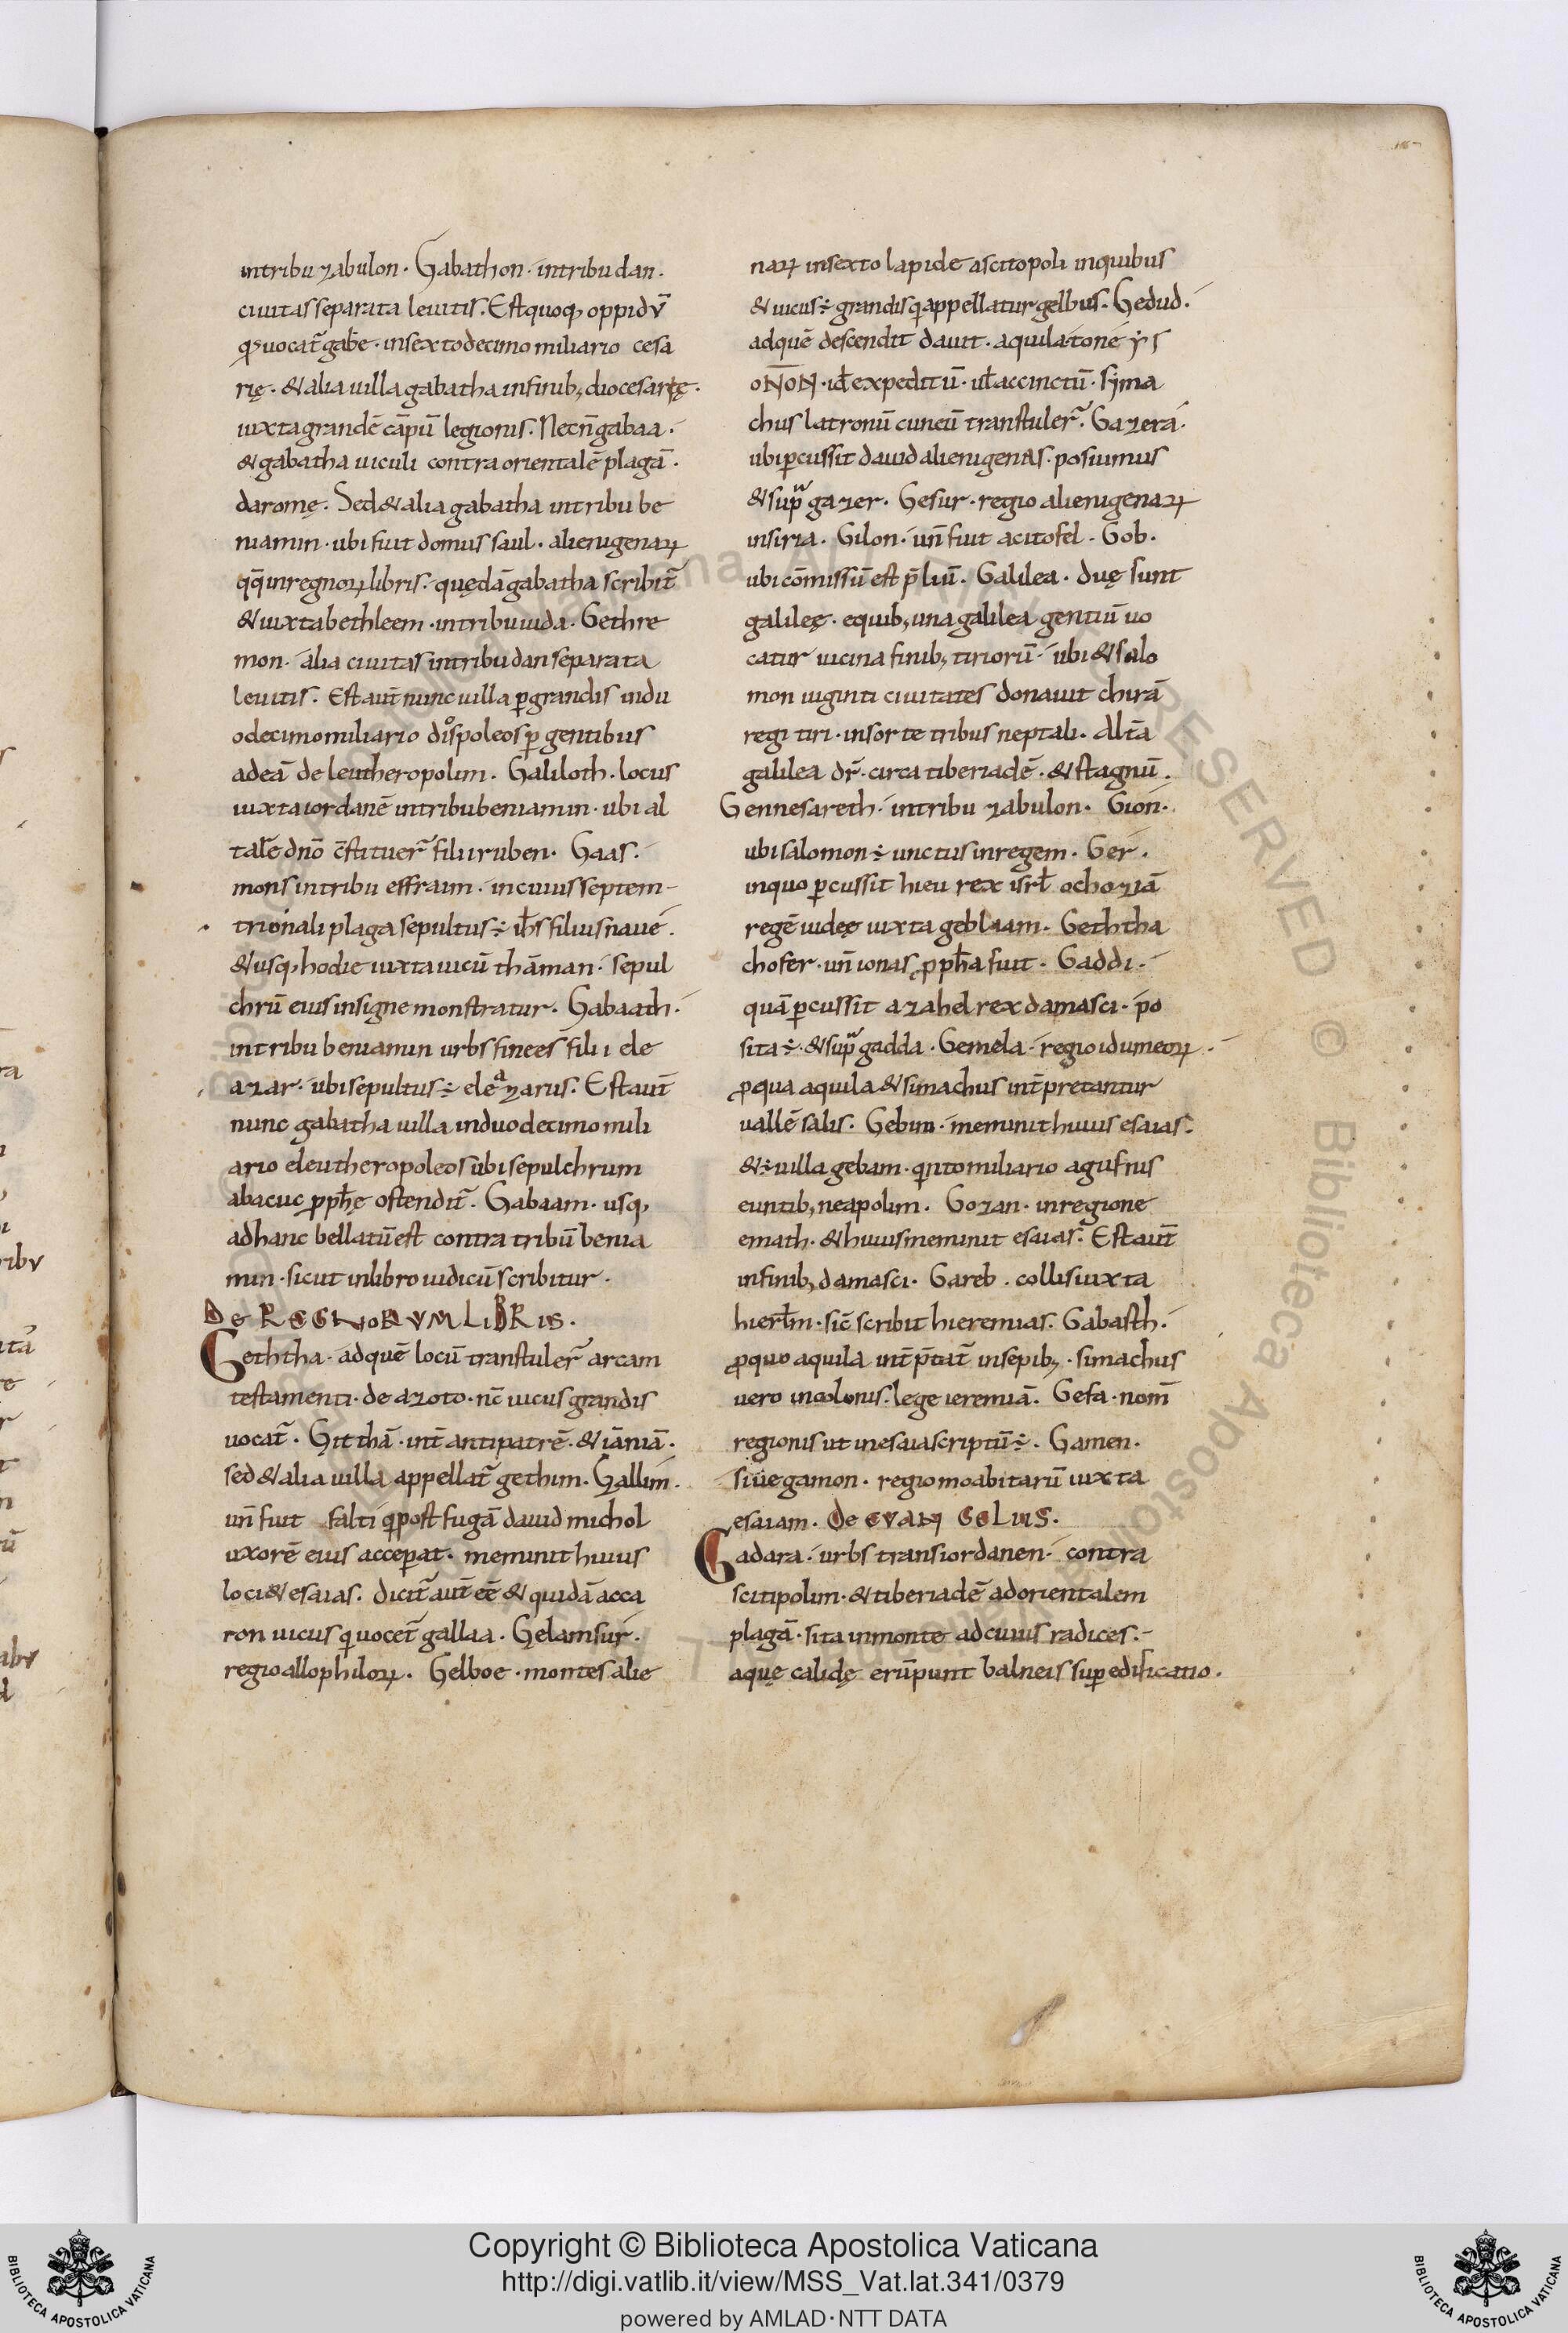 intribu zabulon. Gabathon. intribu dan.
ciuitas separata leuitis. Est quoq; oppidū
qđ uocat̄ gabe. in sexto decimo miliario cesa
rię. & alia uilla gabatha in finib; diocesarię.
iuxta grandē cāpū legionis. Necn̄ gabaa.
& gabatha uiculi contra orientalē plagā.
daromę. Sed & alia gabatha in tribu be
niamin. ubi fuit domus saul. alienigenaꝝ
qq̄ in regnoꝝ libris. quędā gabatha scribit̄
& iuxta bethleem. intribu iuda. Gethre
mon. alia ciuitas intribu dan separata
leuitis. Est aut̄ nunc uilla ꝑgrandis in du
odecimo miliario diospoleos ꝑgentibus
ad eā de leutheropolim. Galiloth. locus
iuxta iordanē intribu beniamin. ubi al
tare dn̄o c̄stituer̄ filii ruben. Gaas.
mons intribu effraim. in cuius septem-
trionali plaga sepultus ÷ ih̄s filius naue.
& usq; hodie iuxta uicū thāman. sepul
chrū eius insigne monstratur. Gabaath.
intribu beniamin urbs finees filii ele
azar. ubi sepultus ÷ eleazarus. Est aut̄
nunc gabatha uilla in duodecimo mili
ario eleutheropoleos ubi sepulchrum
abacuc ꝓph̄ę ostendit̄. Gabaam. usq;
ad hanc bellatū est contra tribū benia
min. sicut in libro iudicū scribitur.
De REGNORVM LIBRIS.
Geththa. ad quē locū transtuler̄ arcam
testamenti. de azoto. nc̄ uicus grandis
uocat̄. Gitthā. int̄ antipatrē. & iāniā.
sed & alia uilla appellat̄ gethim. Gallim.
un̄ fuit falti q̄ post fugā dauid michol
uxorē eius acceꝑat. meminit huius
loci & esaias. dicit̄ aut̄ eē & quidā acca
ron uicus qui uocet̄ gallaa. Gelamsur.
regio allophiloꝝ. Gelboe. montes alie
naꝝ in sexto lapide a scitopoli in quibus
& uicus ÷ grandis qui appellatur gelbus. Gedud.
ad quē descendit dauit. aquila. tone yis
oN̄oN. id̄ expeditū. ul̄ accinctū. sȳma
chus latronū cuneū transtuler̄. Gazera.
ubi ꝑcussit dauid alienigenas. posiumus
& supᷓ gazer. Gesur. regio alienigenaꝝ
in siria. Gilon. un̄ fuit acitofel. Gob.
ubi cōmissū est p̄liū. Galilea. duę sunt
galileę. e quib; una galilea gentiū uo
catur uicina finib; tiriorū. ubi & salo
mon uiginti ciuitates donauit chirā
regi tiri. in sorte tribus neptali. Altā
galilea dr̄. circa tiberiadē. & stagnū.
Gennesareth. intribu zabulon. Gion.
ubi salomon ÷ unctus in regem. Ger.
in quo ꝑcussit hieu rex isrł ochoziā
regē iudeę iuxta geblaam. Geththa
chofer. un̄ ionas ꝓph̄a fuit. Gaddi.
quā ꝑcussit azahel rex damasci. po
sita ÷. & supᷓ gadda. Gemela. regio idumeoꝝ.
ꝓ qua aquila & simachus int̄pretantur
uallē salis. Gebim. meminit huius esaias.
& ÷ uilla gebam. quinto miliario a gufnis
euntib; neapolim. Gozan. in regione
emath. & huius meminit esaias. Est aut̄
in finib; damasci. Gareb. collis iuxta
hierłm. sic̄ scribit hieremias. Gabasth.
ꝓ quo aquila int̄p̄tat̄ in sepib;. simachus
uero in colonis. lege ieremiā. Gefa. nom̄
regionis ut in esaia scriptū ÷. Gamen.
siue gamon. regio moabitarū iuxta
esaiam. De EVANGELIIS.
Gadara. urbs trans iordanen. contra
scitipolim. & tiberiadē ad orientalem
plagā. sita in monte ad cuius radices.
aquę calidę erūpunt balneis suꝑ edificatio.
Copyright © Biblioteca Apostolica Vaticana
http://digi.vatlib.it/view/MSS_Vat.lat.341/0379
powered by AMLAD·NTT DATA
BIBLIOTECA APOSTOLICA VATICANA
BIBLIOTECA APOSTOLICA VATICANA